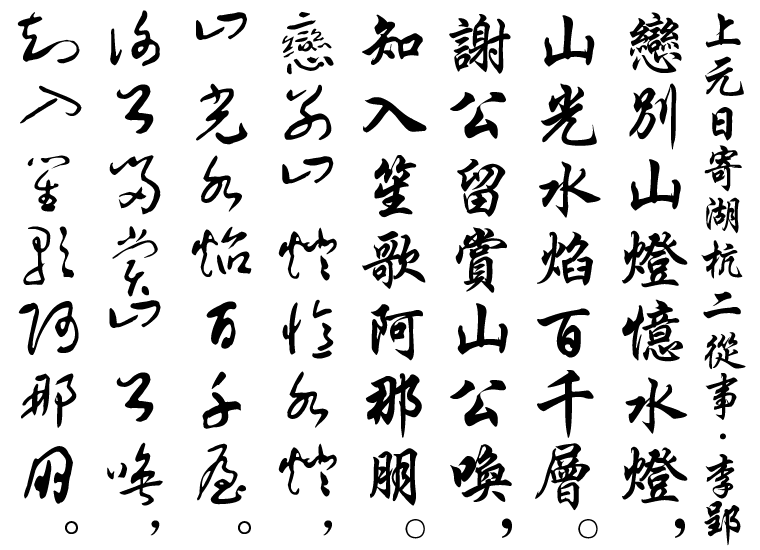 上元日寄湖杭二從事·李郢
戀別山燈憶水燈，
山光水焰百千層。
謝公留賞山公喚，
知入笙歌阿那朋。
戀別山燈憶水燈，
山光水焰百千層。
謝公留賞山公喚，
知入笙歌阿那朋。